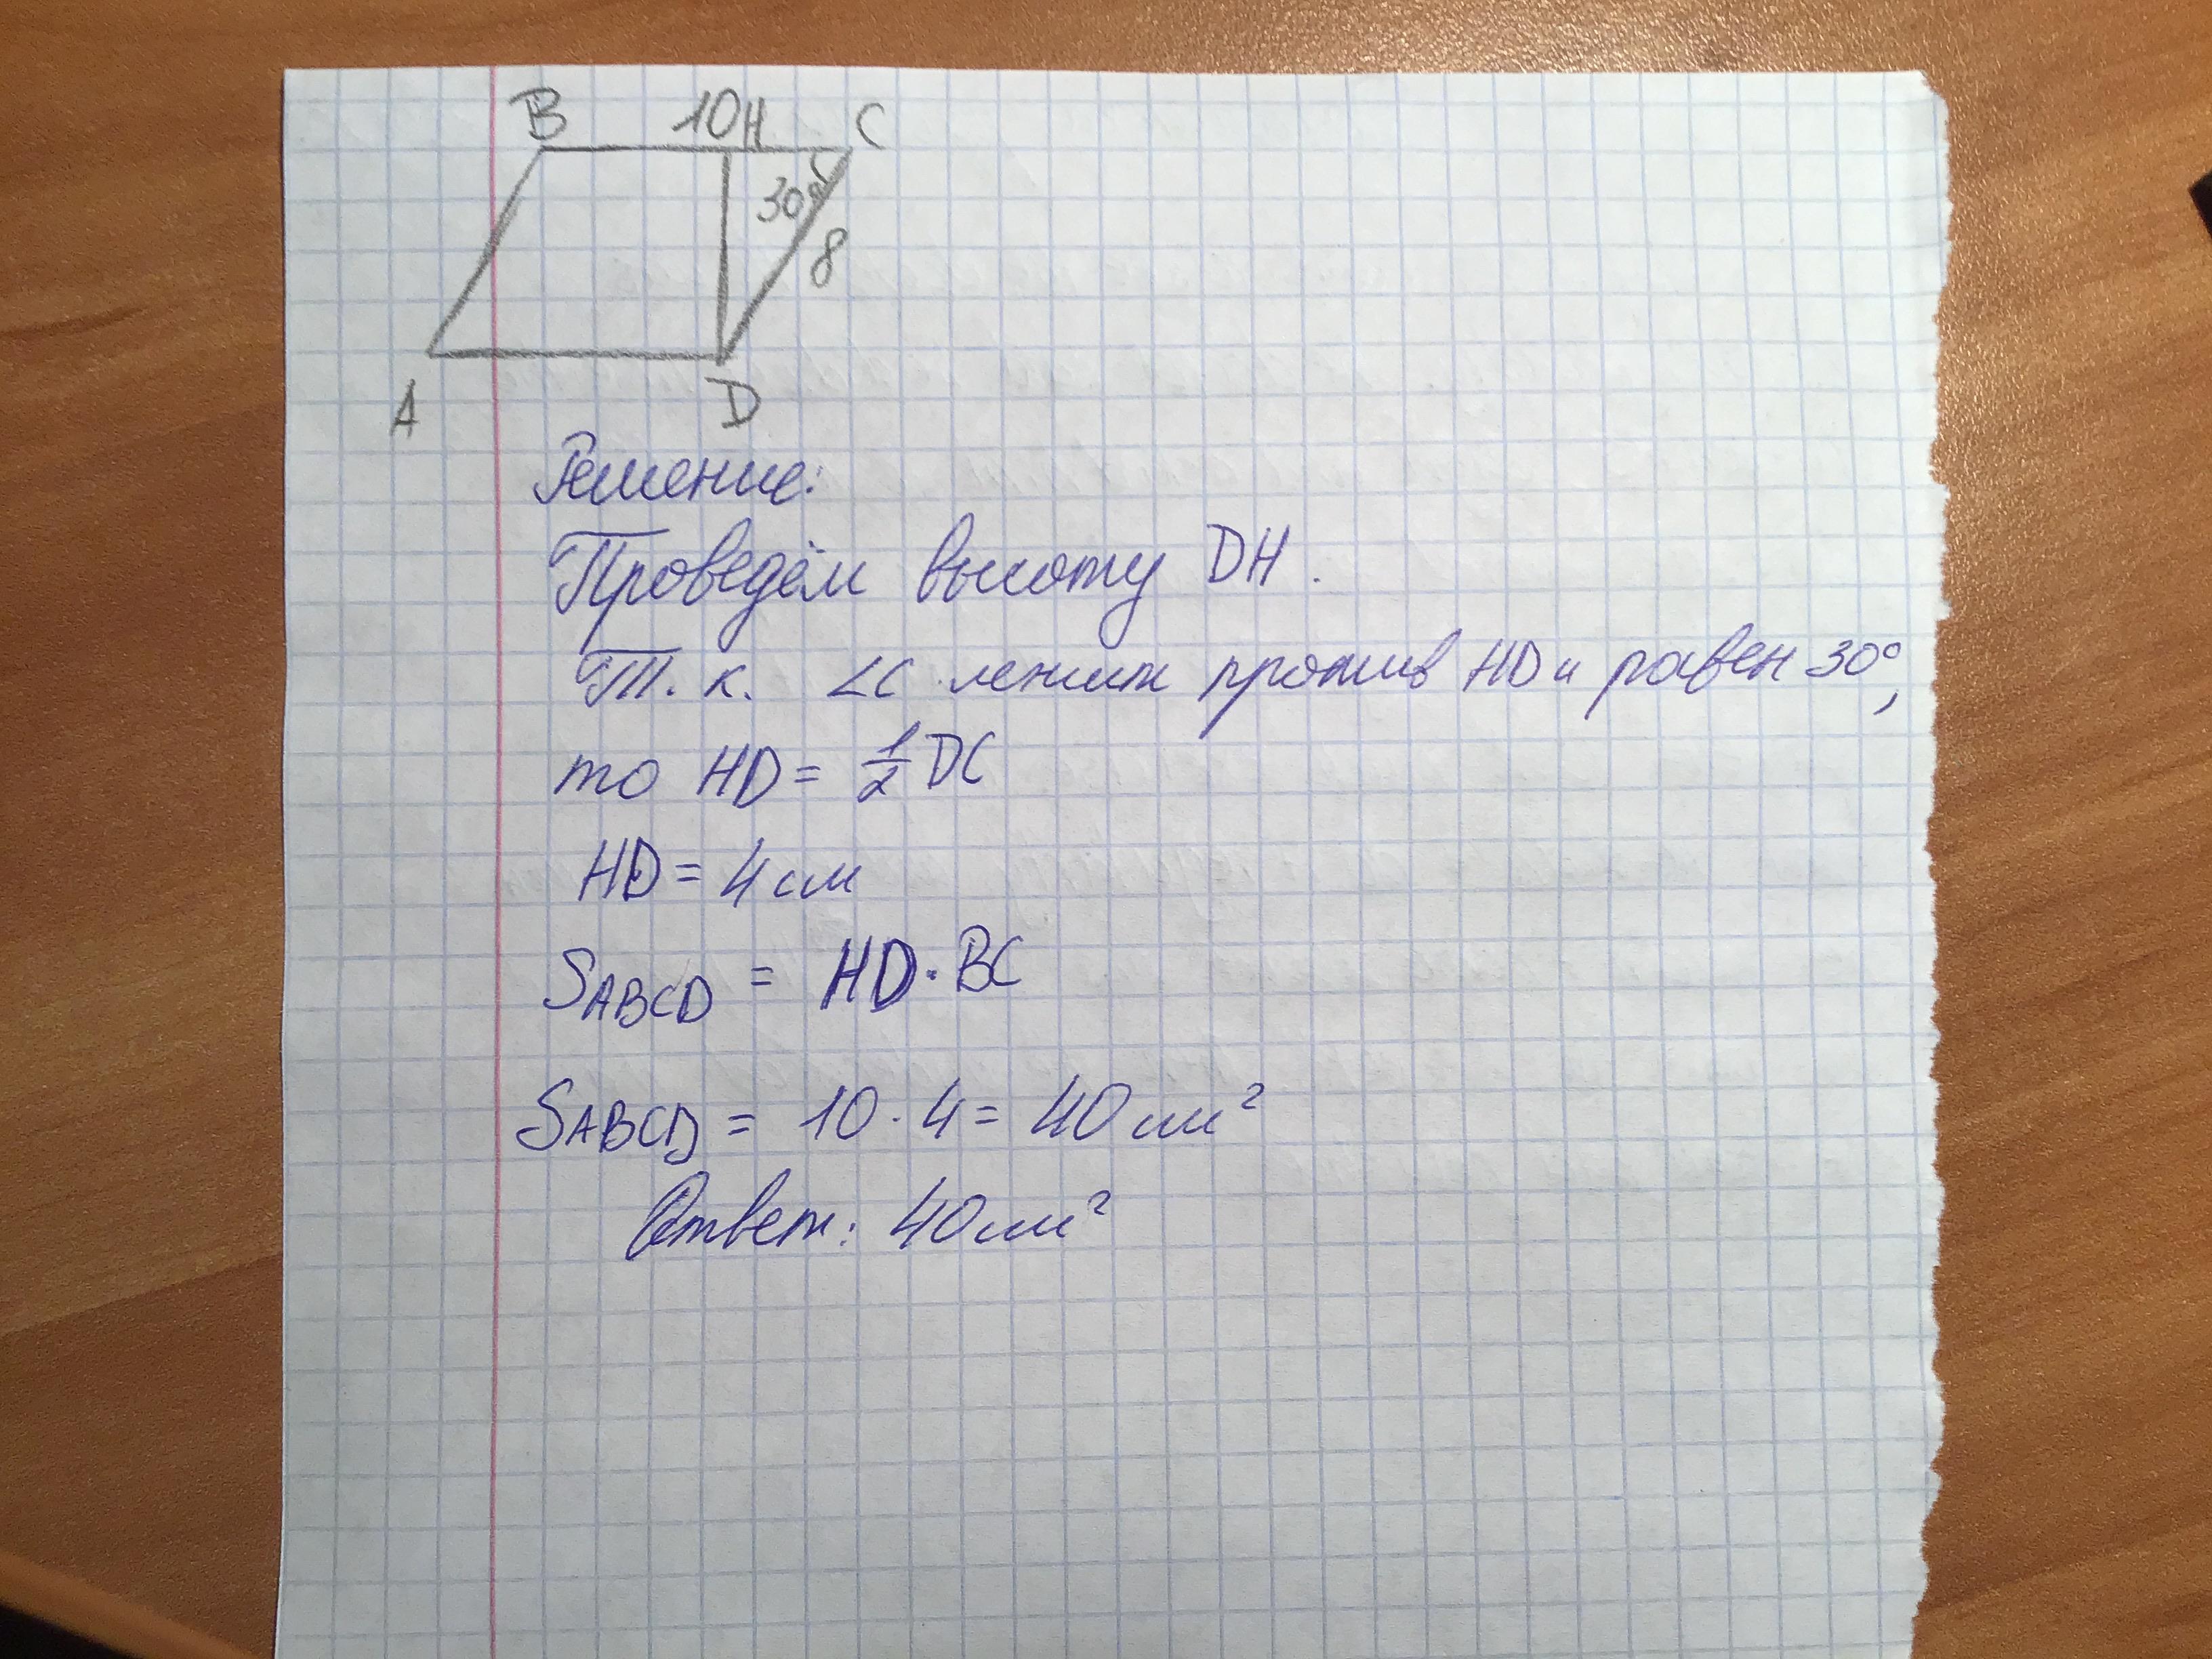 B 10 H C
30°
8
A D
Решение:
Проведём высоту DH.
Т. к. ∠C лежит против HD и равен 30°,
то HD = 1/2 DC
HD = 4 см
SABCD = HD · BC
SABCD = 10 · 4 = 40 см²
Ответ: 40 см²